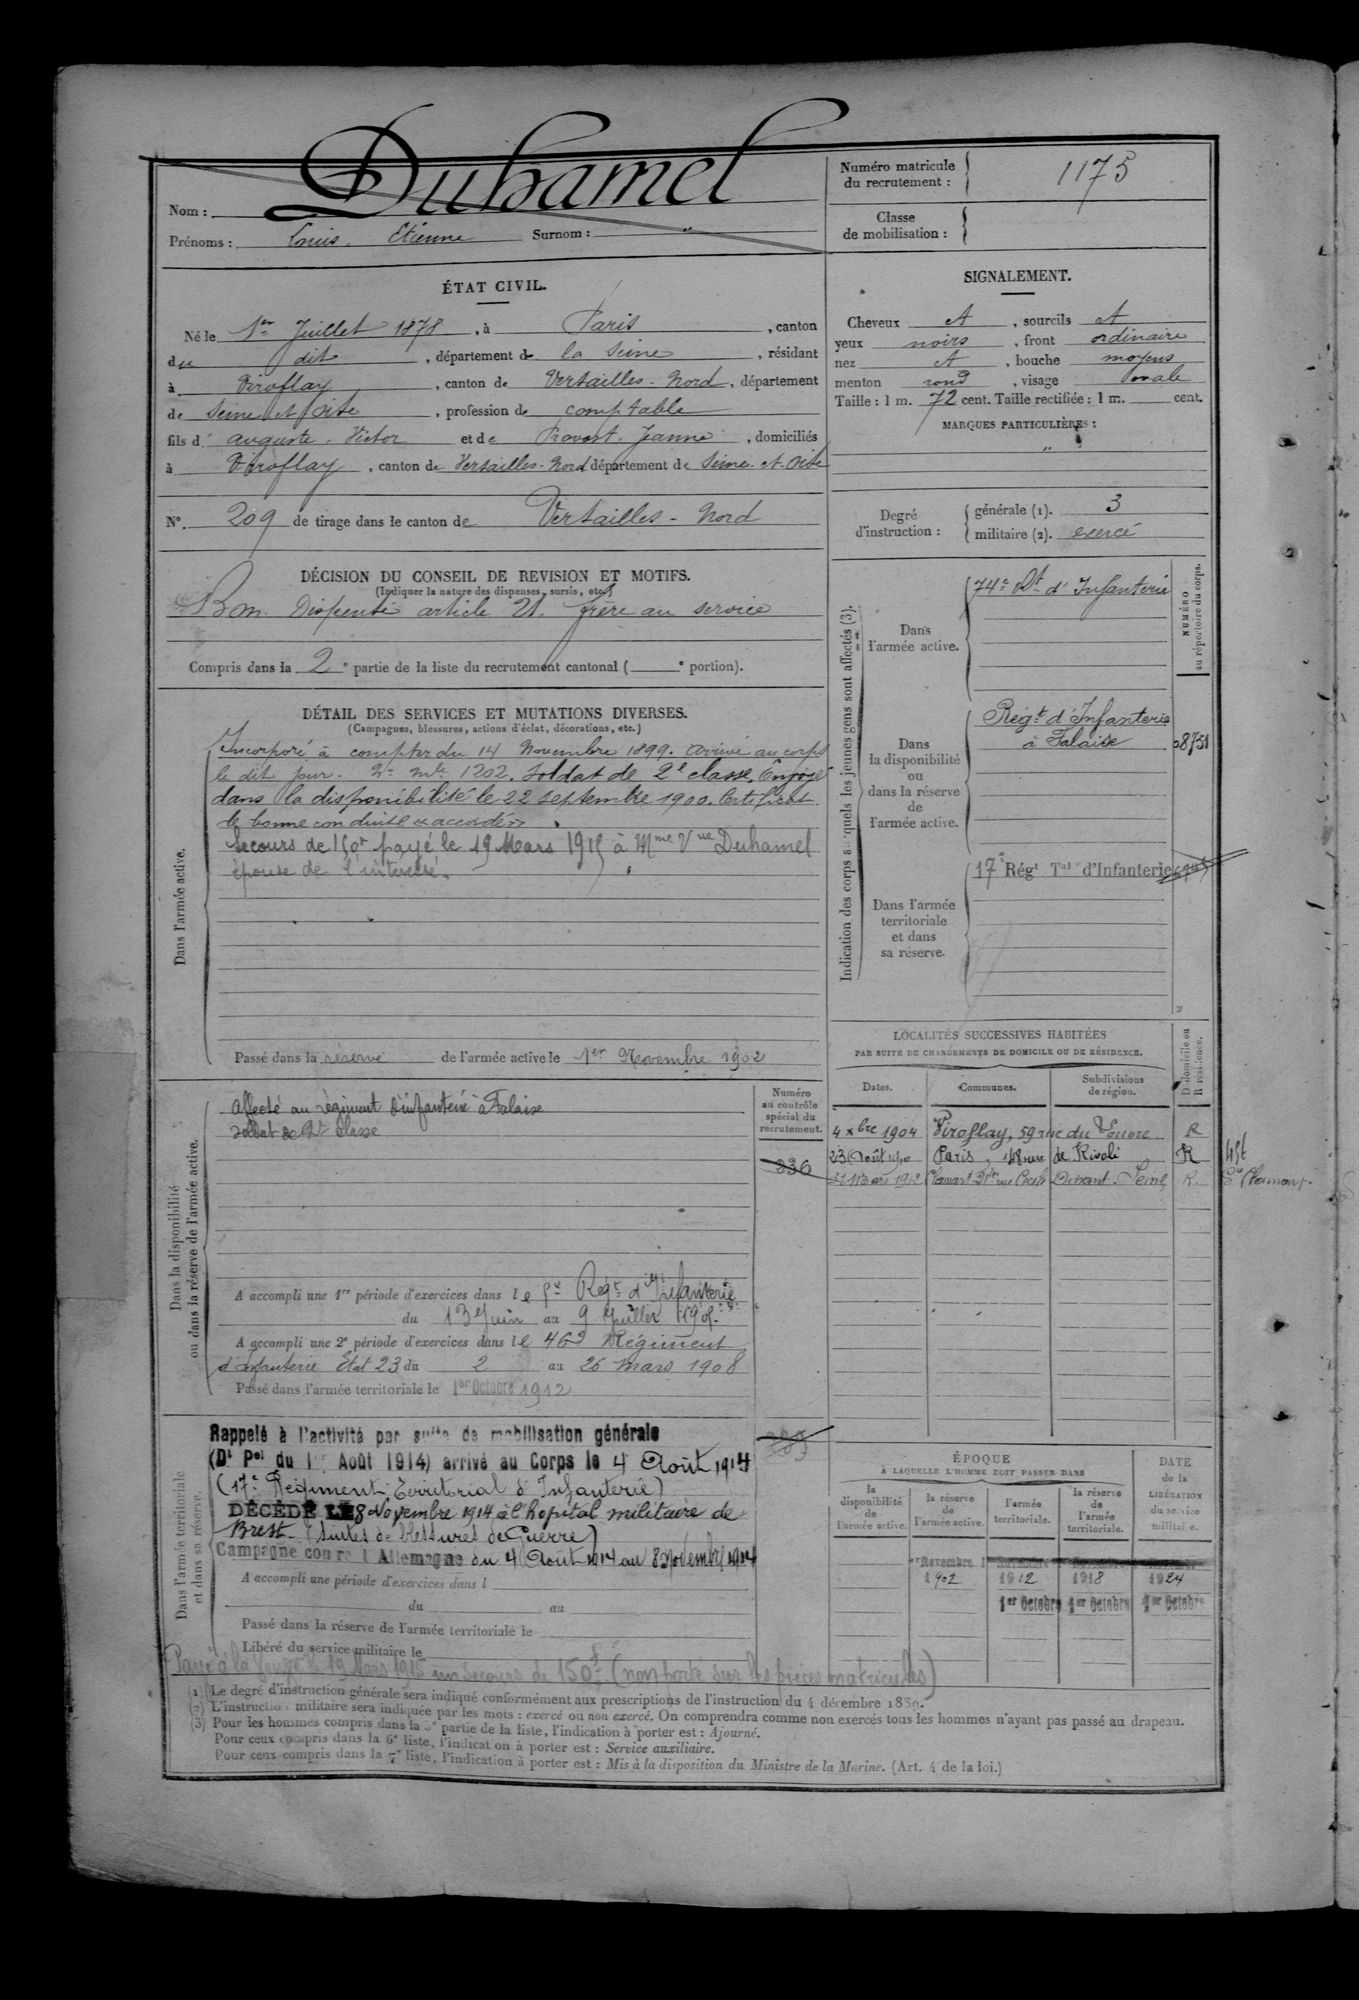 Nom : Duhamel
Prénoms : Louis Etienne Surnom : "
Numéro matricule du recrutement : 1175
Classe de mobilisation :
ÉTAT CIVIL.
Né le 1er Juillet 1878, à Paris, canton
du dit, département de la Seine, résidant
à Viroflay, canton de Versailles-Nord, département
de Seine et Oise, profession de comptable
fils d' auguste Victor et de Provost Jeanne, domiciliés
à Viroflay, canton de Versailles-Nord département de Seine-et-Oise
N° 209 de tirage dans le canton de Versailles-Nord
SIGNALEMENT.
Cheveux , sourcils
yeux noirs, front ordinaire
nez , bouche moyens
menton rond, visage ovale
Taille : 1 m. 72 cent. Taille rectifiée : 1 m. cent.
MARQUES PARTICULIÈRES :
"
Degré d'instruction :
générale (1). 3
militaire (2). exercé
DÉCISION DU CONSEIL DE REVISION ET MOTIFS.
(Indiquer la nature des dispenses, sursis, etc.)
Bon. Dispensé article 21. frère au service
Compris dans la 2e partie de la liste du recrutement cantonal ( e portion).
DÉTAIL DES SERVICES ET MUTATIONS DIVERSES.
(Campagnes, blessures, actions d'éclat, décorations, etc.)
Dans l'armée active.
Incorporé à compter du 14 Novembre 1899. arrivé au corps
le dit jour. No mle 1202. Soldat de 2e classe. Envoyé
dans la disponibilité le 22 septembre 1900. Certificat
de bonne conduite "accordé"
Secours de 150f payé le 19 Mars 1915 à Mme Vve Duhamel
épouse de l'intéressé.
Passé dans la réserve de l'armée active le 1er Novembre 1902
Indication des corps auxquels les jeunes gens sont affectés (3).
NUMÉRO au répertoire du corps.
Dans l'armée active.
74e Rt d'Infanterie
Dans la disponibilité ou dans la réserve de l'armée active.
Régt d'Infanterie
à Falaise
08751
Dans l'armée territoriale et dans sa réserve.
17e Régt Tal d'Infanterie
LOCALITÉS SUCCESSIVES HABITÉES
PAR SUITE DE CHANGEMENTS DE DOMICILE OU DE RÉSIDENCE.
Dates. Communes. Subdivisions de région. D domicile ou R résidence.
4 xbre 1904 Viroflay, 59 rue du Louvre R
23 Août Paris, 148 rue de Rivoli R
Mars 1912 Clamart rue Cécile Dinant. Seine R.
Dans la disponibilité ou dans la réserve de l'armée active.
Numéro au contrôle spécial du recrutement.
Affecté au régiment d'infanterie à Falaise
Soldat de 2e classe
336
A accompli une 1re période d'exercices dans le 5e Régt d'Infanterie
du 13 Juin au 9 Juillet 1905.
A accompli une 2e période d'exercices dans le 46e Régiment
d'Infanterie Etat 23 du 2 au 26 mars 1908
Passé dans l'armée territoriale le 1er Octobre 1912
Dans l'armée territoriale et dans sa réserve.
Rappelé à l'activité par suite de mobilisation générale
(Dt Pel du 1er Août 1914) arrivé au Corps le 4 Août 1914
(17e Régiment Territorial d'Infanterie)
DÉCÉDÉ LE 8 Novembre 1914 à l'hôpital militaire de
Brest. (suites de blessures de Guerre)
Campagne contre l'Allemagne du 4 Août 1914 au 8 Novembre 1914
A accompli une période d'exercices dans l
du au
Passé dans la réserve de l'armée territoriale le
Libéré du service militaire le
Payé à la Veuve le 19 Mars 1915 un secours de 150f (non porté sur les pièces matricules)
ÉPOQUE
À LAQUELLE L'HOMME DOIT PASSER DANS
DATE de la LIBÉRATION du service militaire.
la disponibilité de l'armée active.
la réserve de l'armée active.
l'armée territoriale.
la réserve de l'armée territoriale.
1er Novembre Novembre Novembre Novembre
1902 1912 1918 1924
1er Octobre 1er Octobre 1er Octobre
(1) Le degré d'instruction générale sera indiqué conformément aux prescriptions de l'instruction du 4 décembre 1889.
(2) L'instruction militaire sera indiquée par les mots : exercé ou non exercé. On comprendra comme non exercés tous les hommes n'ayant pas passé au drapeau.
(3) Pour les hommes compris dans la 5e partie de la liste, l'indication à porter est : Ajourné.
Pour ceux compris dans la 6e liste, l'indication à porter est : Service auxiliaire.
Pour ceux compris dans la 7e liste, l'indication à porter est : Mis à la disposition du Ministre de la Marine. (Art. 4 de la loi.)